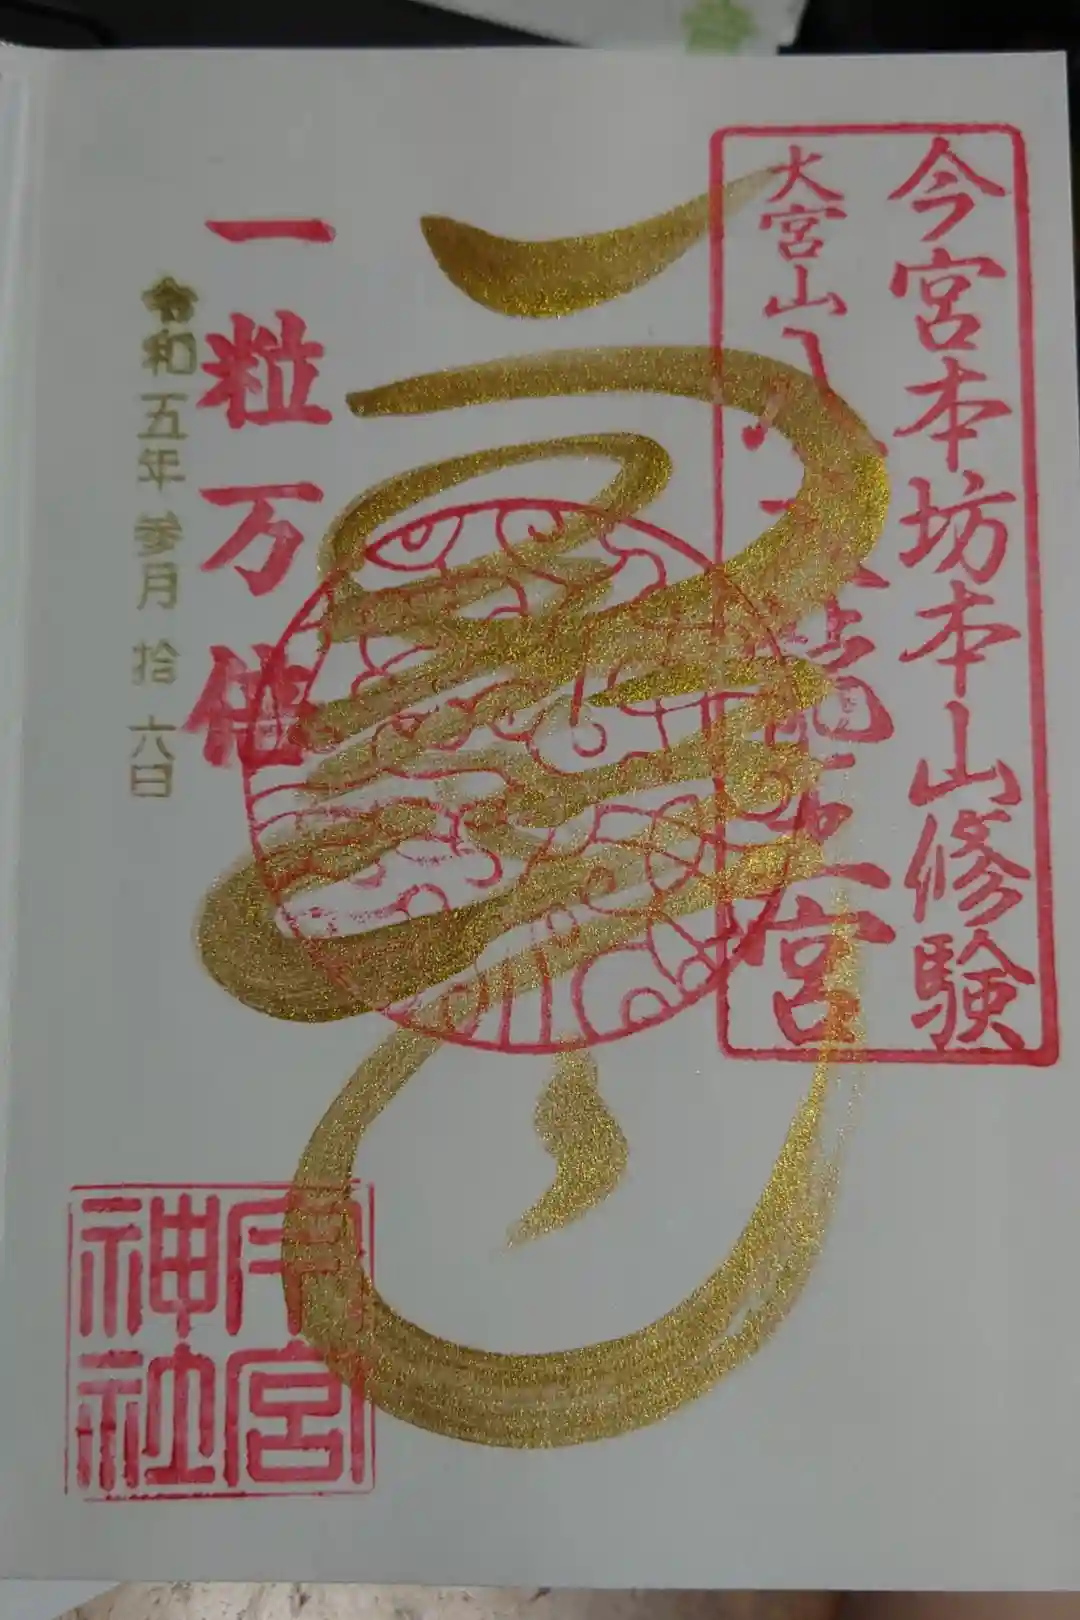 今宮本坊本山修験
大宮山八大龍王宮
一粒万倍
令和五年参月拾六日
今宮神社